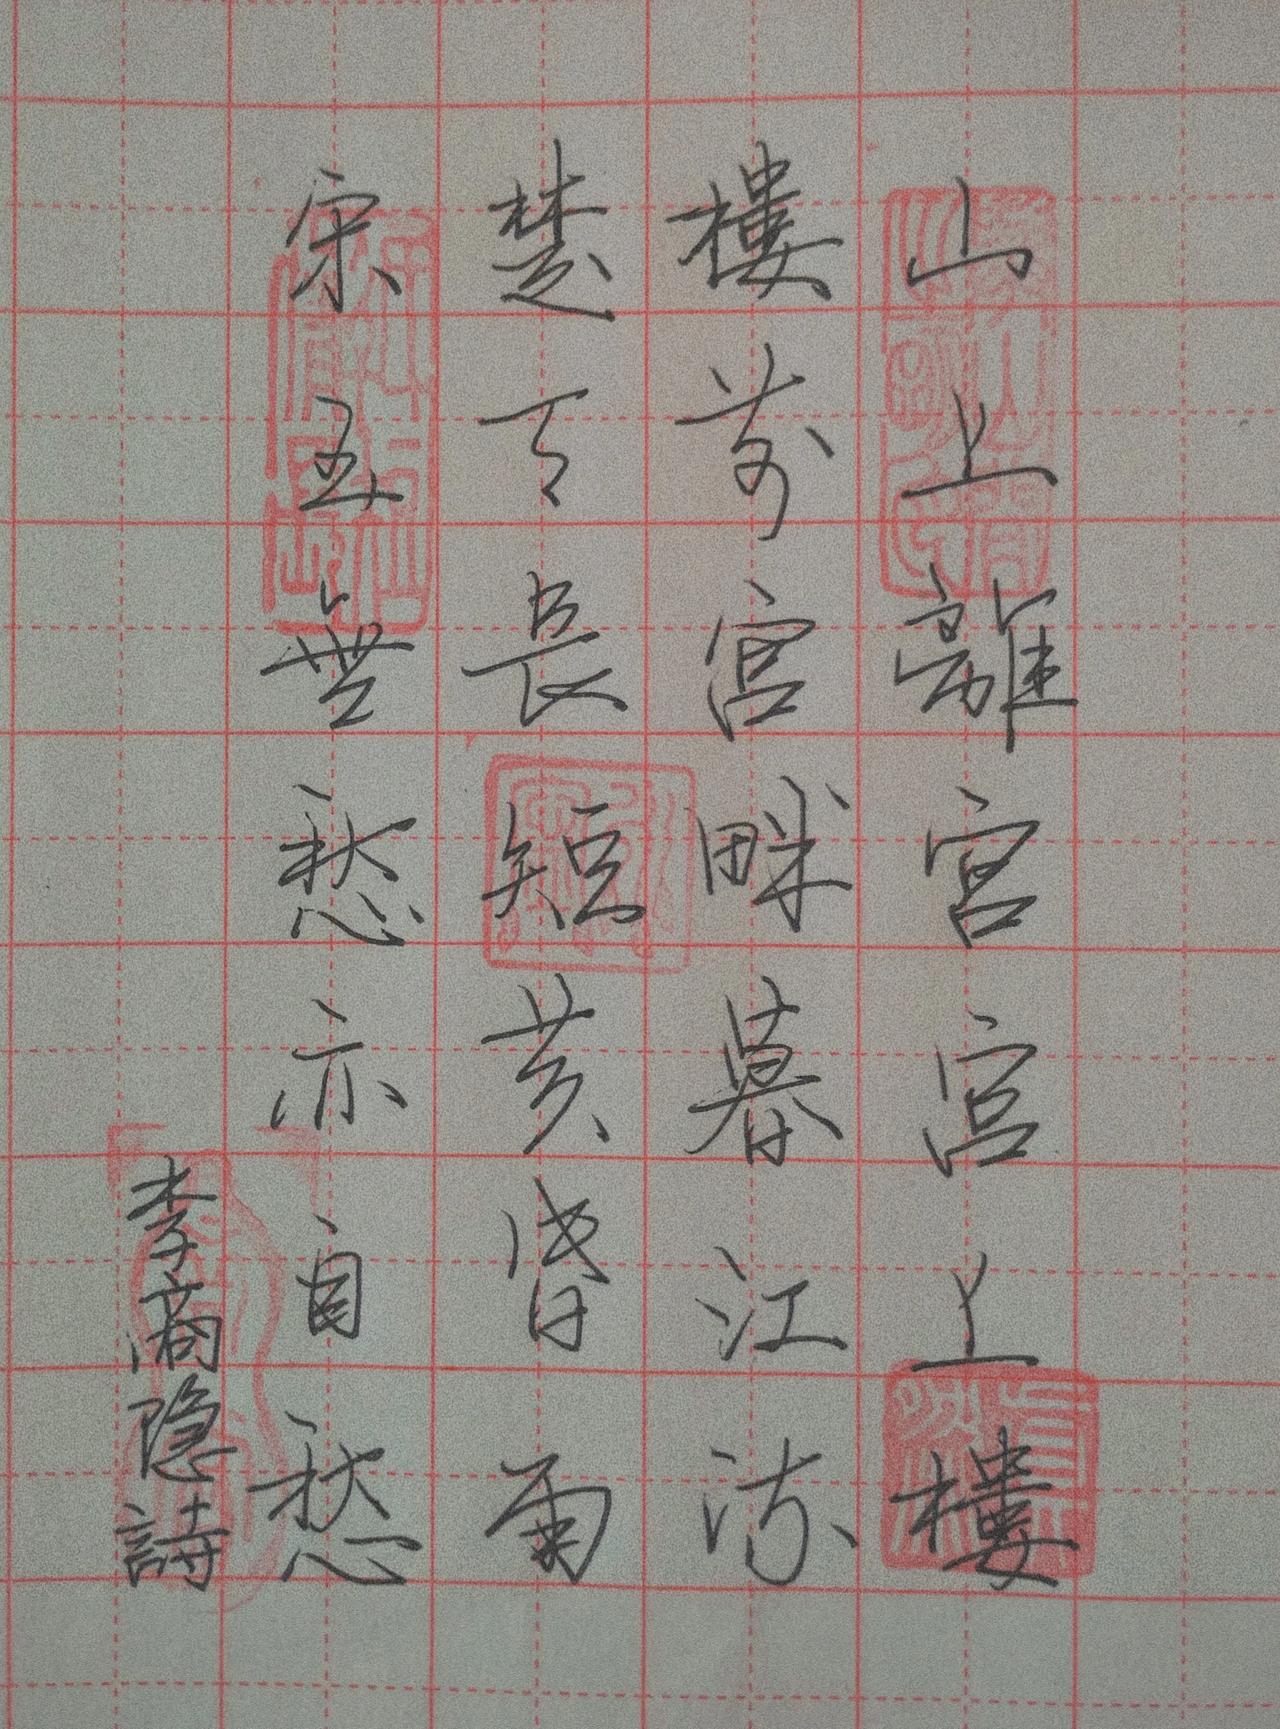 山上離宮宮上樓
樓前宮畔暮江流
楚天長短黃昏雨
宋玉無愁亦自愁
李商隐詩